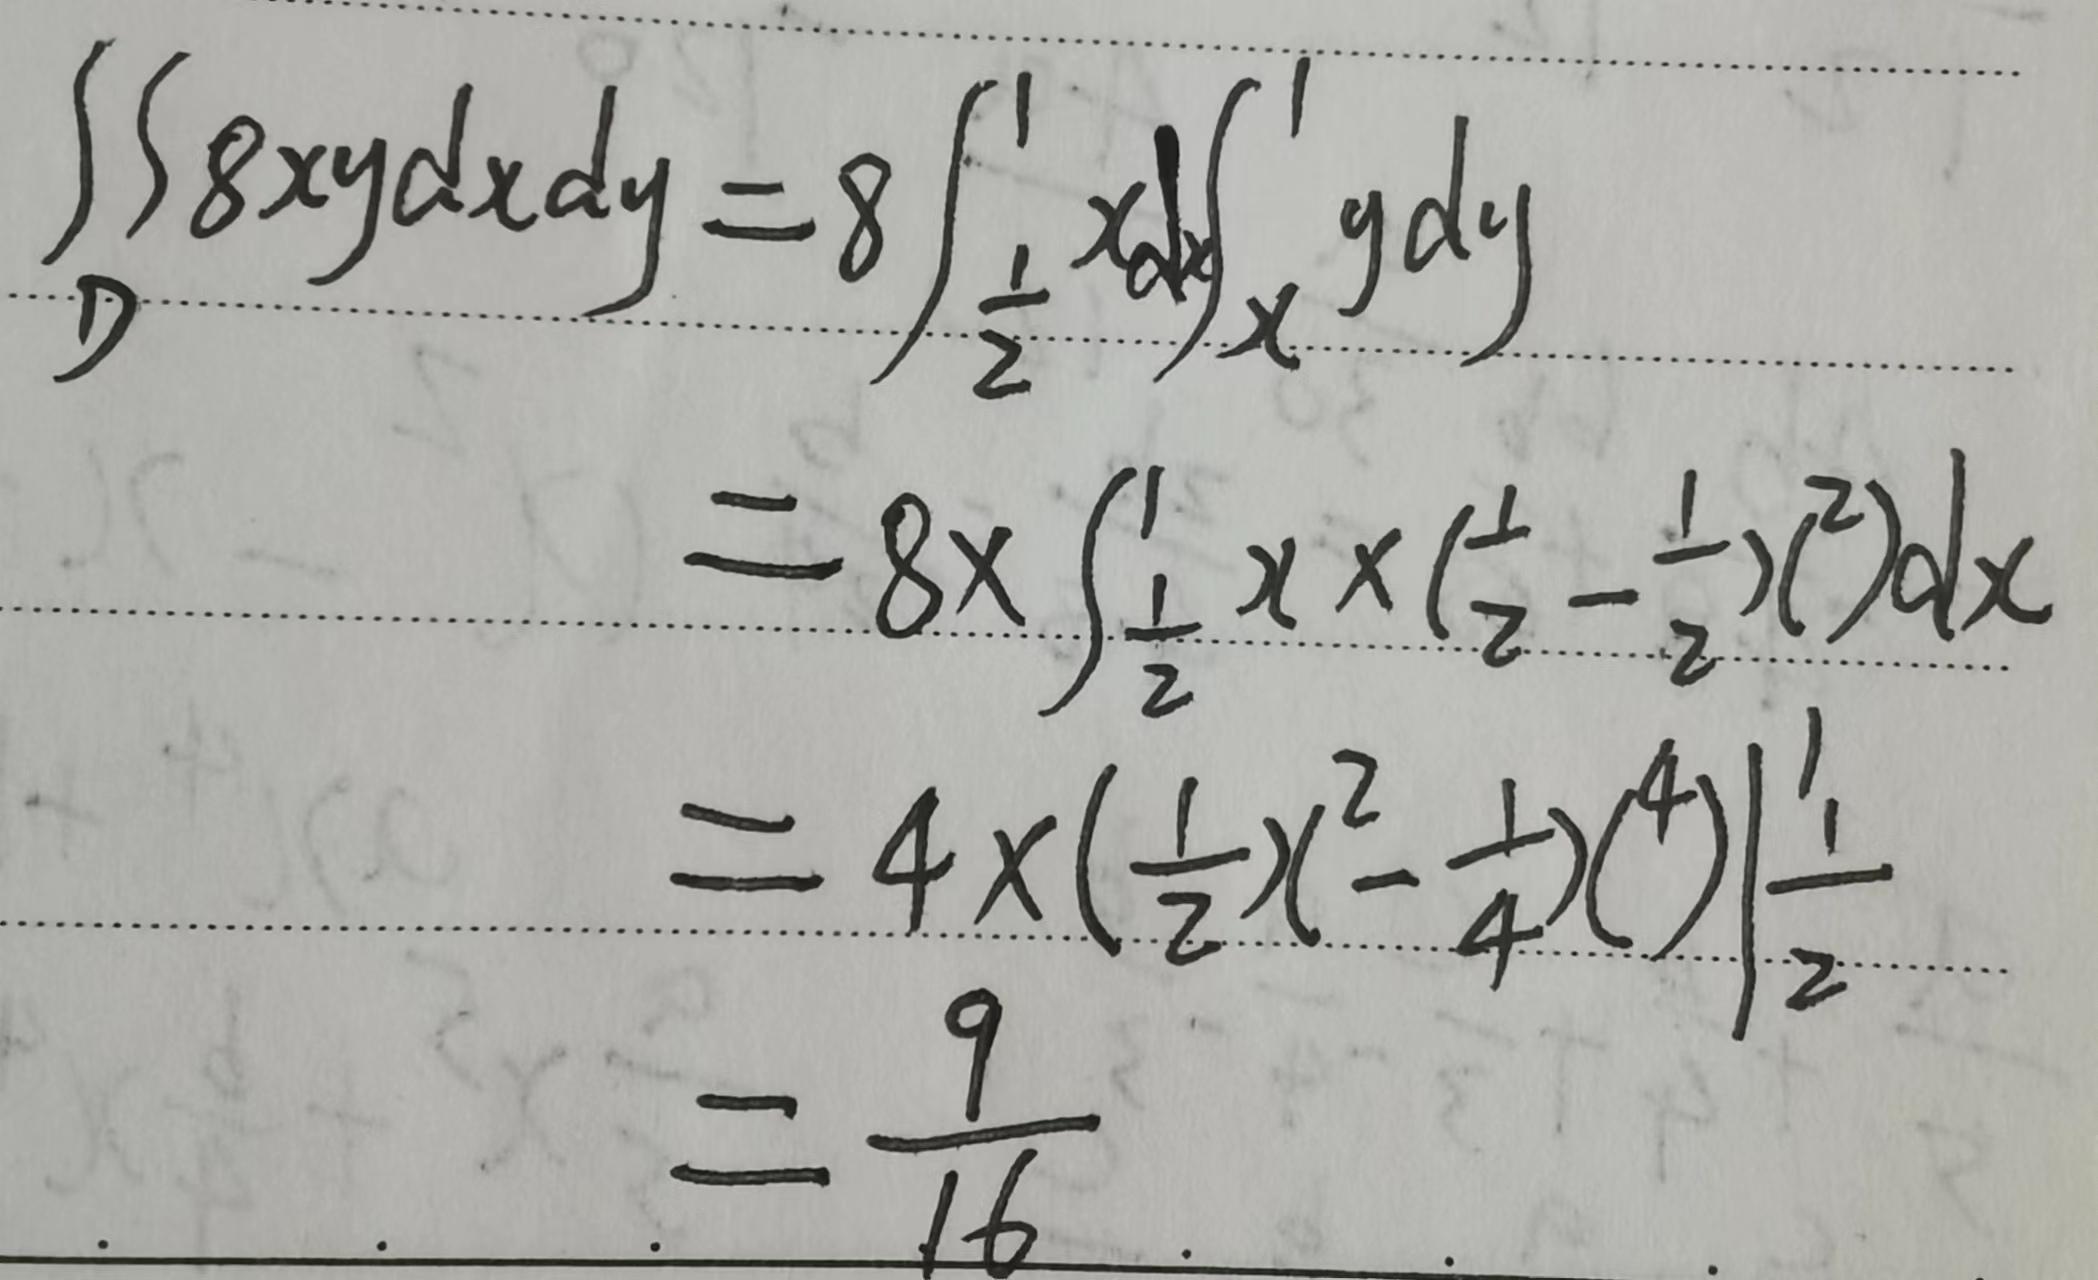 ∬_D 8xydxdy = 8∫_{1/2}^{1} xdx ∫_{x}^{1} ydy
= 8 × ∫_{1/2}^{1} x × (1/2 - 1/2 x²)dx
= 4 × (1/2 x² - 1/4 x⁴)|_{1/2}^{1}
= 9/16